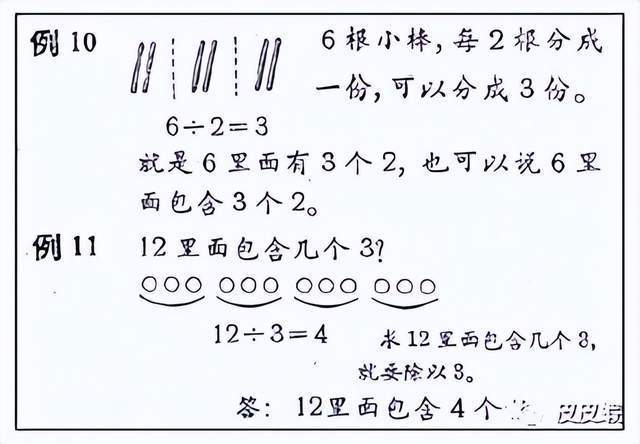 例10
6根小棒，每2根分成
一份，可以分成3份。
6÷2=3
就是6里面有3个2，也可以说6里
面包含3个2。
例11 12里面包含几个3？
12÷3=4
求12里面包含几个3，
就要除以3。
答：12里面包含4个